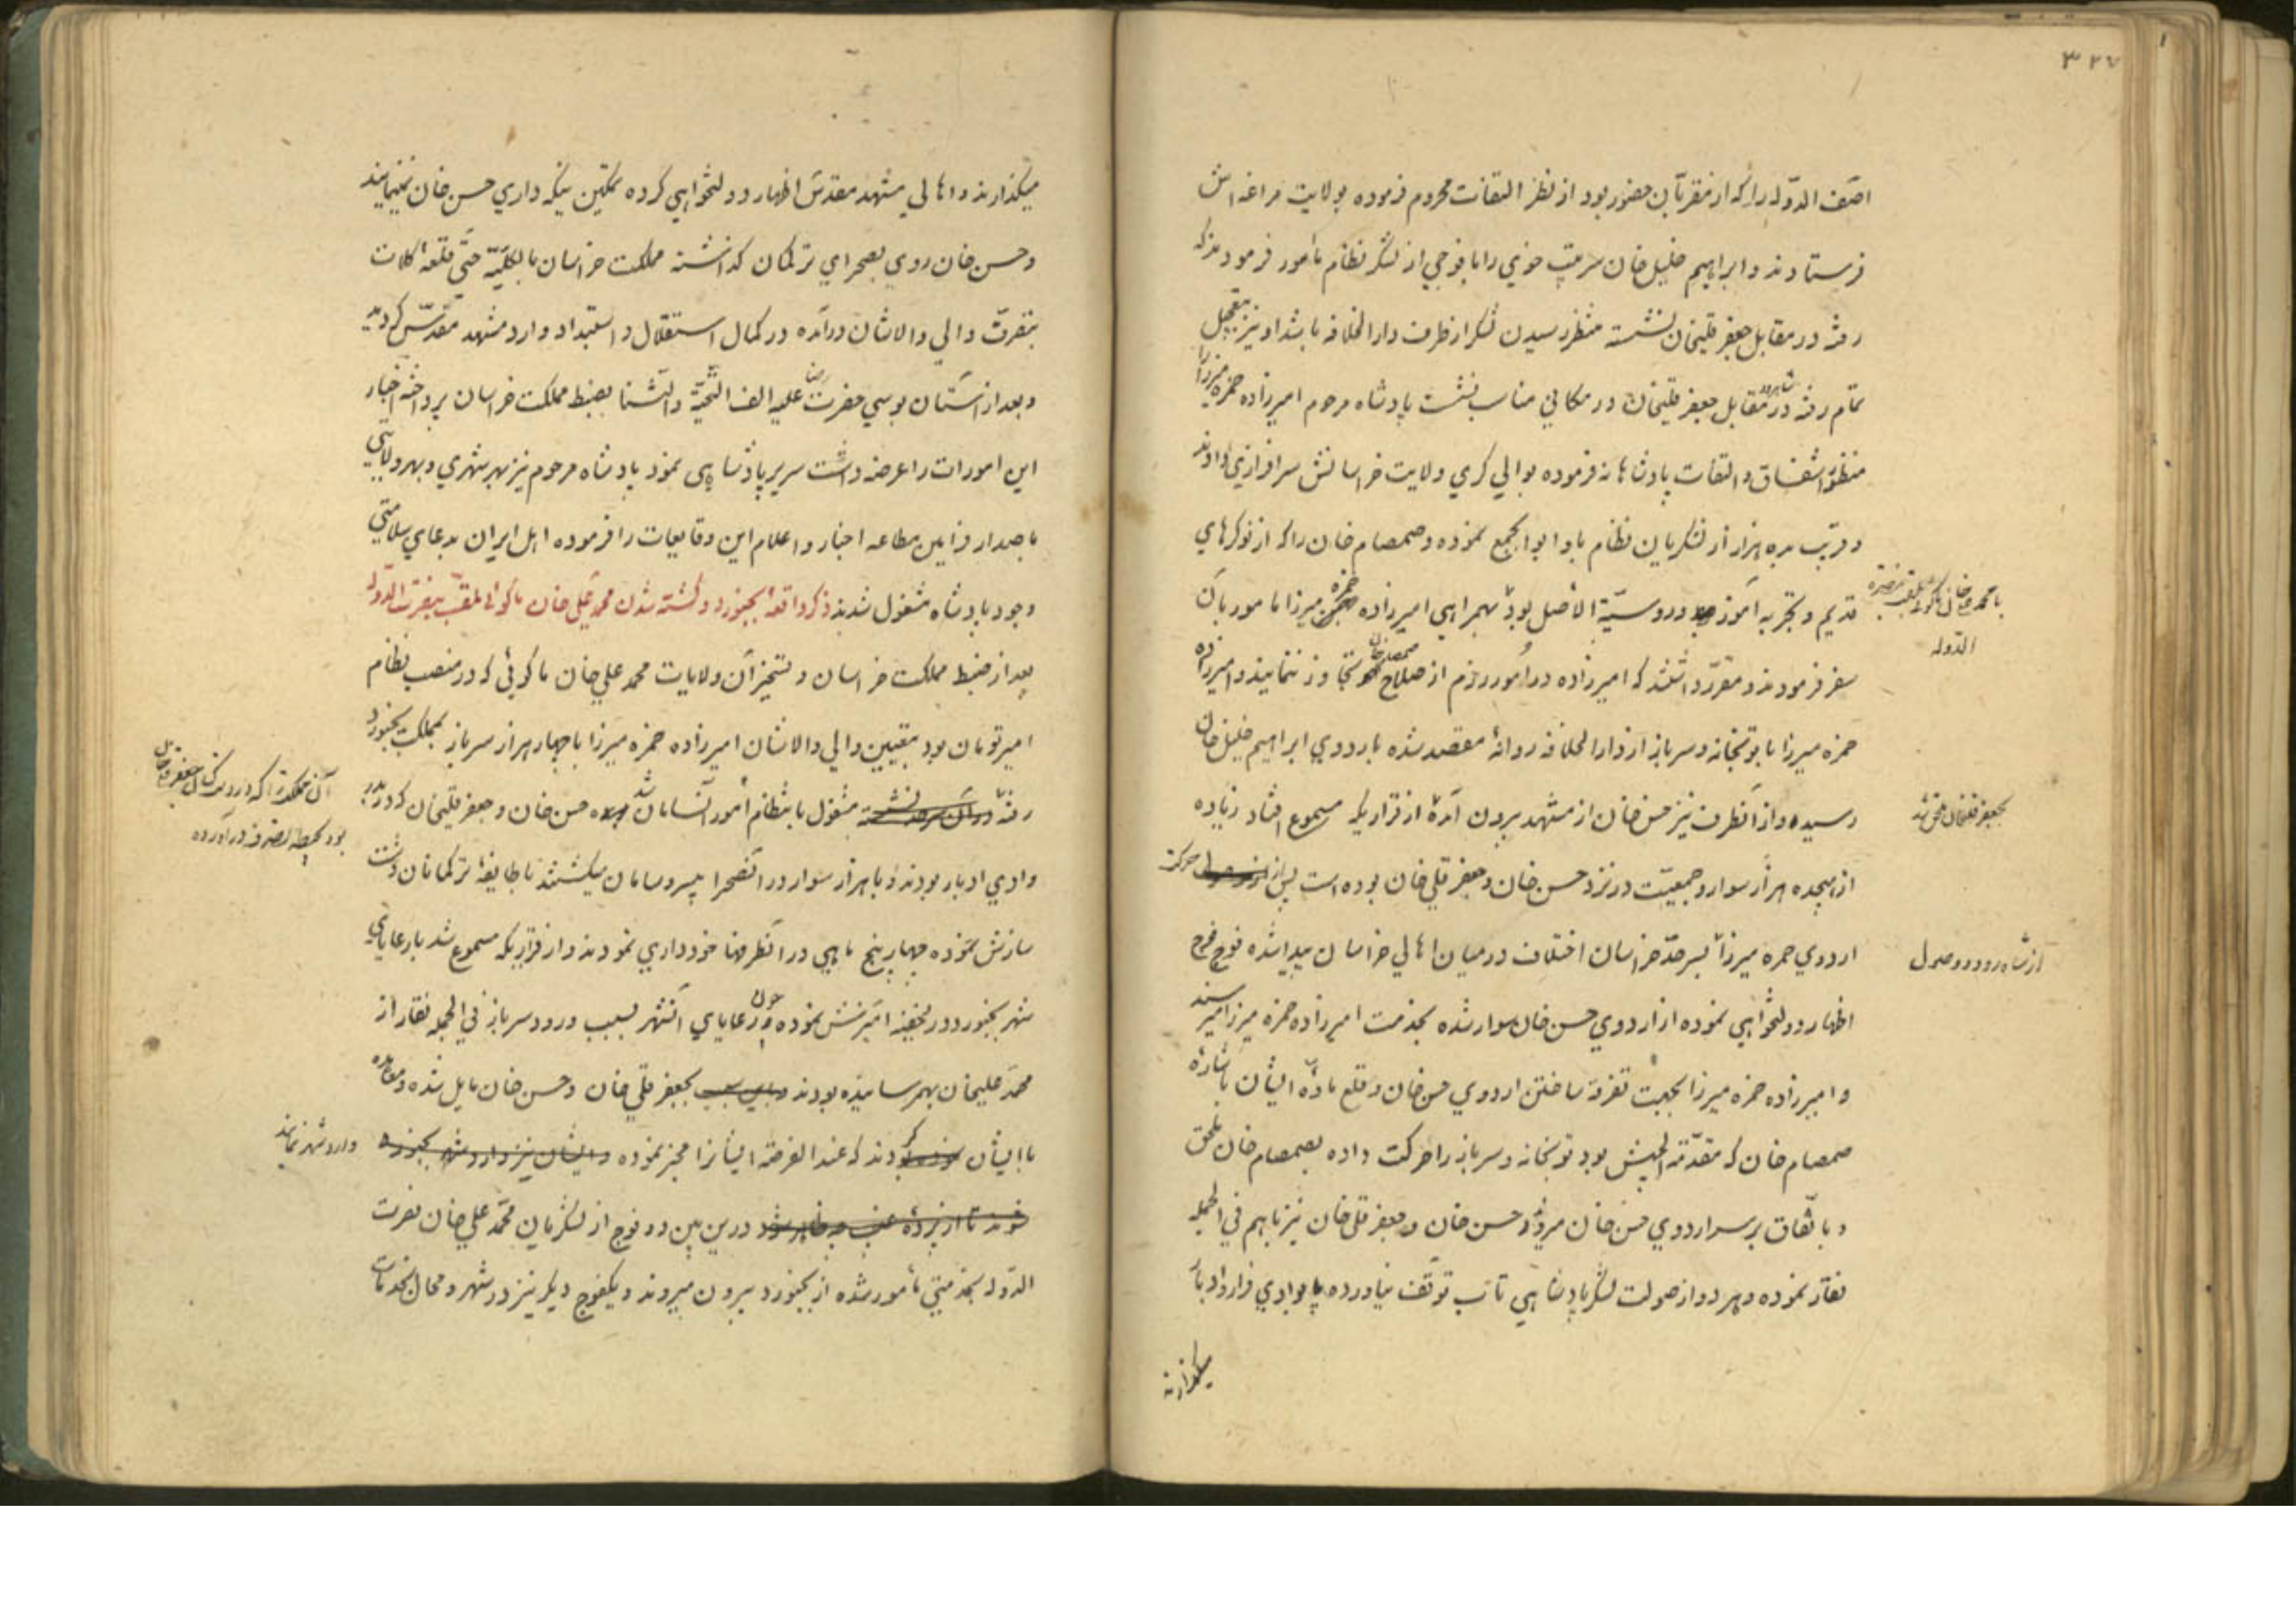 ۳۲۷
آصف الدّوله را که از مقرّبان حضور بود از نظر التفات محروم فرموده بولایت مراغه اش
فرستادند و ابراهیم خلیل خان سرتیپ خوی را با فوجی از لشکر نظام مأمور فرمودند که
رفته در مقابل جعفر قلیخان نشسته منتظر رسیدن لشکر از طرف دار الخلافه باشد او نیز بتعجیل
تمام رفته در مقابل جعفر قلیخان در مکانی مناسب بنشست پادشاه مرحوم امیرزاده حمزه میرزا را
منظور اشفاق و التفات پادشاهانه فرموده بوالی کری ولایت خراسانش سرافرازی دادند
و قریب بده هزار از لشکریان نظام باو ابوابجمع نموده و صمصام خان را که از نوکرهای
قدیم و تجربه آموز و روسیّة الاصل بود بهمراهی امیرزاده حمزه میرزا مامور بآن
با محمد علیخان ماکوئی ملقب بنصرة
الدّوله
سفر فرمودند و مقرّر داشتند که امیرزاده در امور رزم از صلاح صمصام خان تجاوز ننمایند و امیرزاده
حمزه میرزا با توپخانه و سرباز از دار الخلافه روانهٔ مقصد شده باردوی ابراهیم خلیل خان
رسیده و از آنطرف نیز حسن خان از مشهد بیرون آمده از قراریکه مسموع افتاد زیاده
بجعفر قلیخان ملحق شد
از هیجده هزار سوار و جمعیّت در نزد حسن خان و جعفر قلی خان بوده است پس از حرکت
اردوی حمزه میرزا بسر حدّ خراسان اختلاف در میان اهالی خراسان پیدا شده فوج فوج
از شاهرود و وصول
اظهار دولتخواهی نموده از اردوی حسن خان سوار شده بخدمت امیرزاده حمزه میرزا میرسند
و امیرزاده حمزه میرزا بجهت تفرقه ساختن اردوی حسن خان و قلع مادّه ایشان باشاره
صمصام خان که مقدّمة الجیش بود توپخانه و سرباز را حرکت داده بصمصام خان ملحق
و باتّفاق بر سر اردوی حسن خان میرود حسن خان و جعفر قلی خان نیز باهم فی الجمله
نقار نموده و هر دو از صولت لشکر پادشاهی تاب توقّف نیاورده پا بوادی فرار و ادبار
میگذارند
میگذارند و اهالی مشهد مقدّس اظهار دولتخواهی کرده تمکین بنگه داری حسن خان نمینمایند
و حسن خان روی بصحرای ترکمان گذاشته مملکت خراسان بالکلیّه حتّی قلعهٔ کلات
بتصرّف والی والاشان درآمده در کمال استقلال و استبداد وارد مشهد مقدّس کردید
و بعد از آستان بوسی حضرت رضا علیه الف التحیّة و الثنا بضبط مملکت خراسان پرداخته اخبار
این امورات را عرضه داشت سریر پادشاهی نمود پادشاه مرحوم نیز بهر شهری و بهر ولایتی
باصدار فرامین مطاعه اخبار و اعلام این وقایعات را فرموده اهل ایران بدعای سلامتی
وجود پادشاه مشغول شدند ذکر واقعهٔ بجنورد و کشته شدن محمد علی خان ماکوئی ملقّب بنصرت الدّوله
بعد از ضبط مملکت خراسان و تسخیر آن ولایات محمد علی خان ماکوئی که در منصب نظام
امیر تومان بود بتعیین والی والاشان امیرزاده حمزه میرزا با چهار هزار سرباز بمملکت بجنورد
رفته در آن سرحد نشسته مشغول بانتظام امور آنسامان شد حسن خان و جعفر قلیخان که در بدر
آن مملکت را که در دست کسان جعفر قلیخان
بود بحیطه تصرف درآورده
وادی ادبار بودند و با هزار سوار در آنصحرا بیسر و سامان میکشتند با طایفهٔ ترکمانان دشت
سازش نموده چهار پنج ماهی در آنطرفها خودداری نمودند و از قراریکه مسموع شد با رعایای
شهر بجنورد در خفیه آمیزش نموده چون رعایای آنشهر بسبب ورود سرباز فی الجمله نقار از
محمّد علیخان بهمرسانیده بودند و باین سبب بجعفر قلی خان و حسن خان مایل شده و معاهده
با ایشان کردند که عند الفرصه ایشانرا مخبر نموده و ایشان نیز وارد شهر بجنورد
وارد شهر نمایند
شوند تا از پردهٔ غیب چه ظاهر شود درین بین دو فوج از لشکریان محمّد علی خان نصرت
الدّوله بخدمتی مأمور شده از بجنورد بیرون میروند و یکفوج دیکر نیز در شهر و محال بخدمات